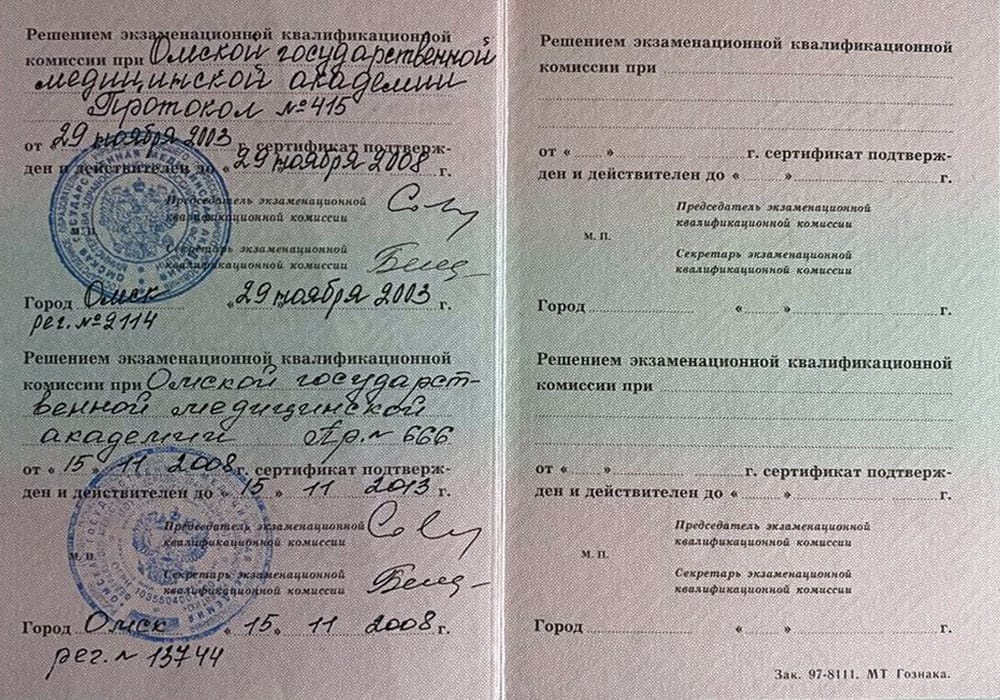 Решением экзаменационной квалификационной
комиссии при Омской государственной
медицинской академии
Протокол №415
от 29 ноября 2003 г. сертификат подтверж-
ден и действителен до «29 ноября 2008 г.
Председатель экзаменационной
квалификационной комиссии
М. П.
Секретарь экзаменационной
квалификационной комиссии
Город Омск «29 ноября 2003 г.
рег. №2114
Решением экзаменационной квалификационной
комиссии при Омской государст-
венной медицинской
академии Пр.№ 666
от «15» 11 2008 г. сертификат подтверж-
ден и действителен до «15» 11 2013 г.
Председатель экзаменационной
квалификационной комиссии
М. П.
Секретарь экзаменационной
квалификационной комиссии
Город Омск «15» 11 2008 г.
рег. № 13744
Решением экзаменационной квалификационной
комиссии при
от « » г. сертификат подтверж-
ден и действителен до « » г.
Председатель экзаменационной
квалификационной комиссии
М. П.
Секретарь экзаменационной
квалификационной комиссии
Город « » г.
Решением экзаменационной квалификационной
комиссии при
от « » г. сертификат подтверж-
ден и действителен до « » г.
Председатель экзаменационной
квалификационной комиссии
М. П.
Секретарь экзаменационной
квалификационной комиссии
Город « » г.
Зак. 97-8111. МТ Гознака.